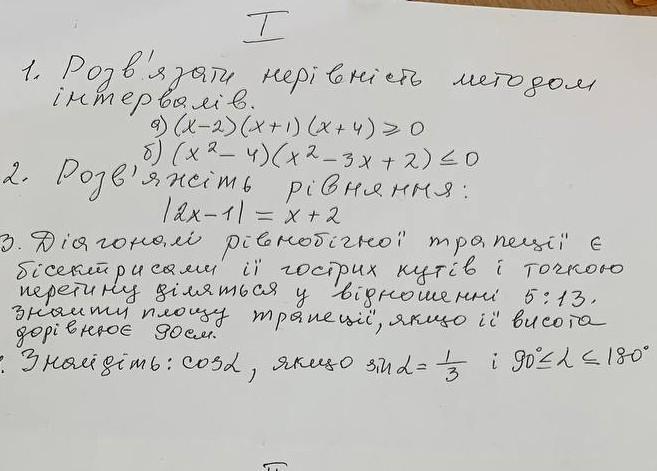 I
1. Розв'язати нерівність методом
інтервалів.
а) (x-2)(x+1)(x+4) ⩾ 0
б) (x² - 4)(x² - 3x + 2) ≤ 0
2. Розв'яжіть рівняння:
|2x-1| = x+2
3. Діагоналі рівнобічної трапеції є
бісектрисами її гострих кутів і точкою
перетину діляться у відношенні 5:13.
Знайти площу трапеції, якщо її висота
дорівнює 90см.
Знайдіть: cosα, якщо sinα = 1/3 і 90° ≤ α ≤ 180°